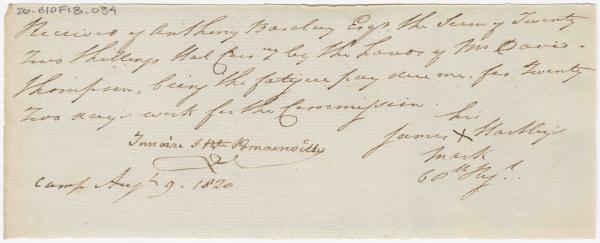 26-B10F18-034
Received of Anthony Barclay Esqr the Sum of Twenty
Two Shillings Hal Cur ny by the Hands of Mr David
Thompson, being the fatigue pay due me, for Twenty
Two days work for the Commission.
his
James X Hartley
mark
60th Regt.
Camp Augt 9. 1820